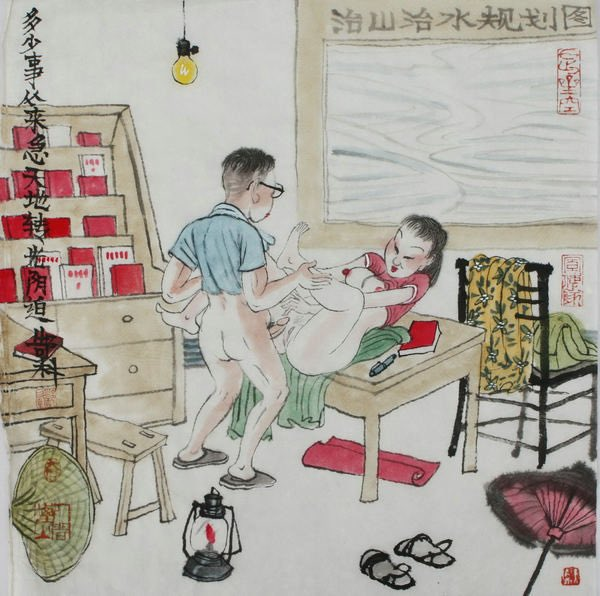 治山治水规划图
多少事从来急天地转光阴迫